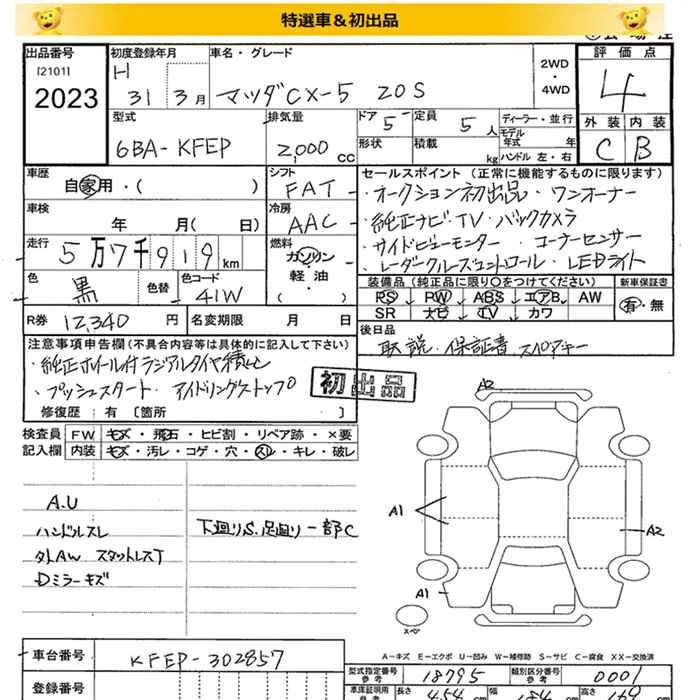 特選車＆初出品
出品番号
[2101]
2023
初度登録年月
H
31 3 月
車名・グレード
マツダCX-5 20S
2WD
・
4WD
評価点
4
外装 内装
C B
型式
6BA-KFEP
排気量
2,000 cc
ドア 5
定員 5 人
形状
積載 kg
ディーラー・並行
モデル年式 年
ハンドル 左・右
車歴
自家用・( )
シフト
FAT
車検
年 月( 日)
冷房
AAC
走行
5万7千919 km
燃料
ガソリン
軽・油
( )
色
黒
色替
色コード
41W
R券 12,340 円
名変期限 月 日
セールスポイント（正常に機能するものに限ります）
・オークション初出品・ワンオーナー
・純正ナビ・TV・バックカメラ
・サイドビューモニター・コーナーセンサー
・レーダークルーズコントロール・LEDライト
装備品（純正品に限り○をつけてください）
新車保証書
PS PW ABS エアB AW
SR ナビ TV カワ
有・無
後日品
取説・保証書・スペアキー
注意事項申告欄(不具合内容等は具体的に記入して下さい)
・純正ホイール付ラジアルタイヤ積込
・プッシュスタート・アイドリングストップ
修復歴 有 〔箇所 〕
初出品
検査員記入欄
FW キズ・飛石・ヒビ割・リペア跡・×要
内装 キズ・汚レ・コゲ・穴・スレ・キレ・破レ
A.U
ハンドルスレ
下廻りS.足廻り一部C
外AW スタットレスT
Dミラーキズ
A2
A1
A2
A1
スペア
A-キズ E-エクボ U-凹み W-補修跡 S-サビ C-腐食 XX-交換済
車台番号
KFEP-302857
型式指定番号
参考
18795
類別区分番号
参考
0001
登録番号
車庫証明用
参考
長さ
454
幅
184
高さ